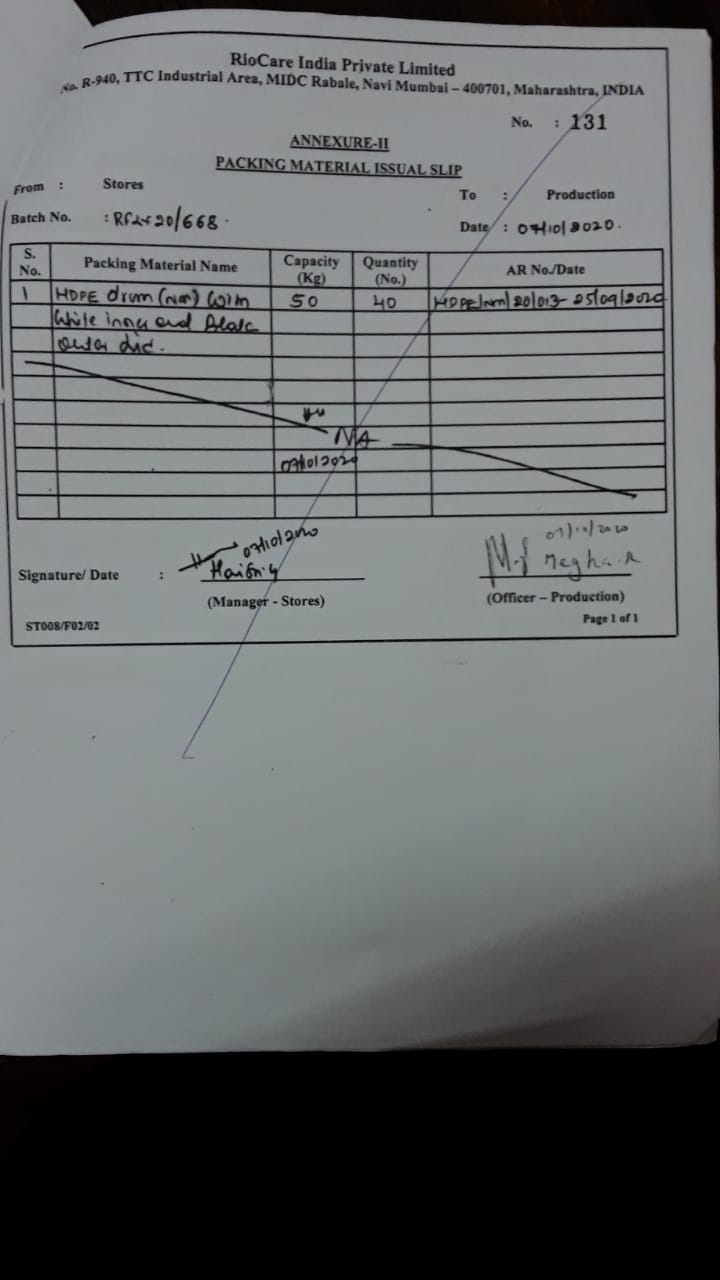 RioCare India Private Limited
No. R-940, TTC Industrial Area, MIDC Rabale, Navi Mumbai – 400701, Maharashtra, INDIA
No. : 131
ANNEXURE-II
PACKING MATERIAL ISSUAL SLIP
From : Stores To : Production
Batch No. : /668. Date : 07/10/2020.
S. No. Packing Material Name Capacity (Kg) Quantity (No.) AR No./Date
1 HDPE drum (NM) with 50 40 HDPE/NM/20/013- 25/09/2020
White inner and Black
outer lid.
NA
07/10/2020
07/10/2020 07/10/2020
Signature/ Date : Megha.R
(Manager - Stores) (Officer – Production)
ST008/F02/02 Page 1 of 1